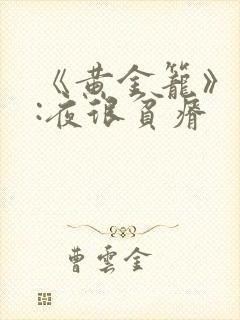 《黄金籠》
:夜很貧瘠
曹雲金